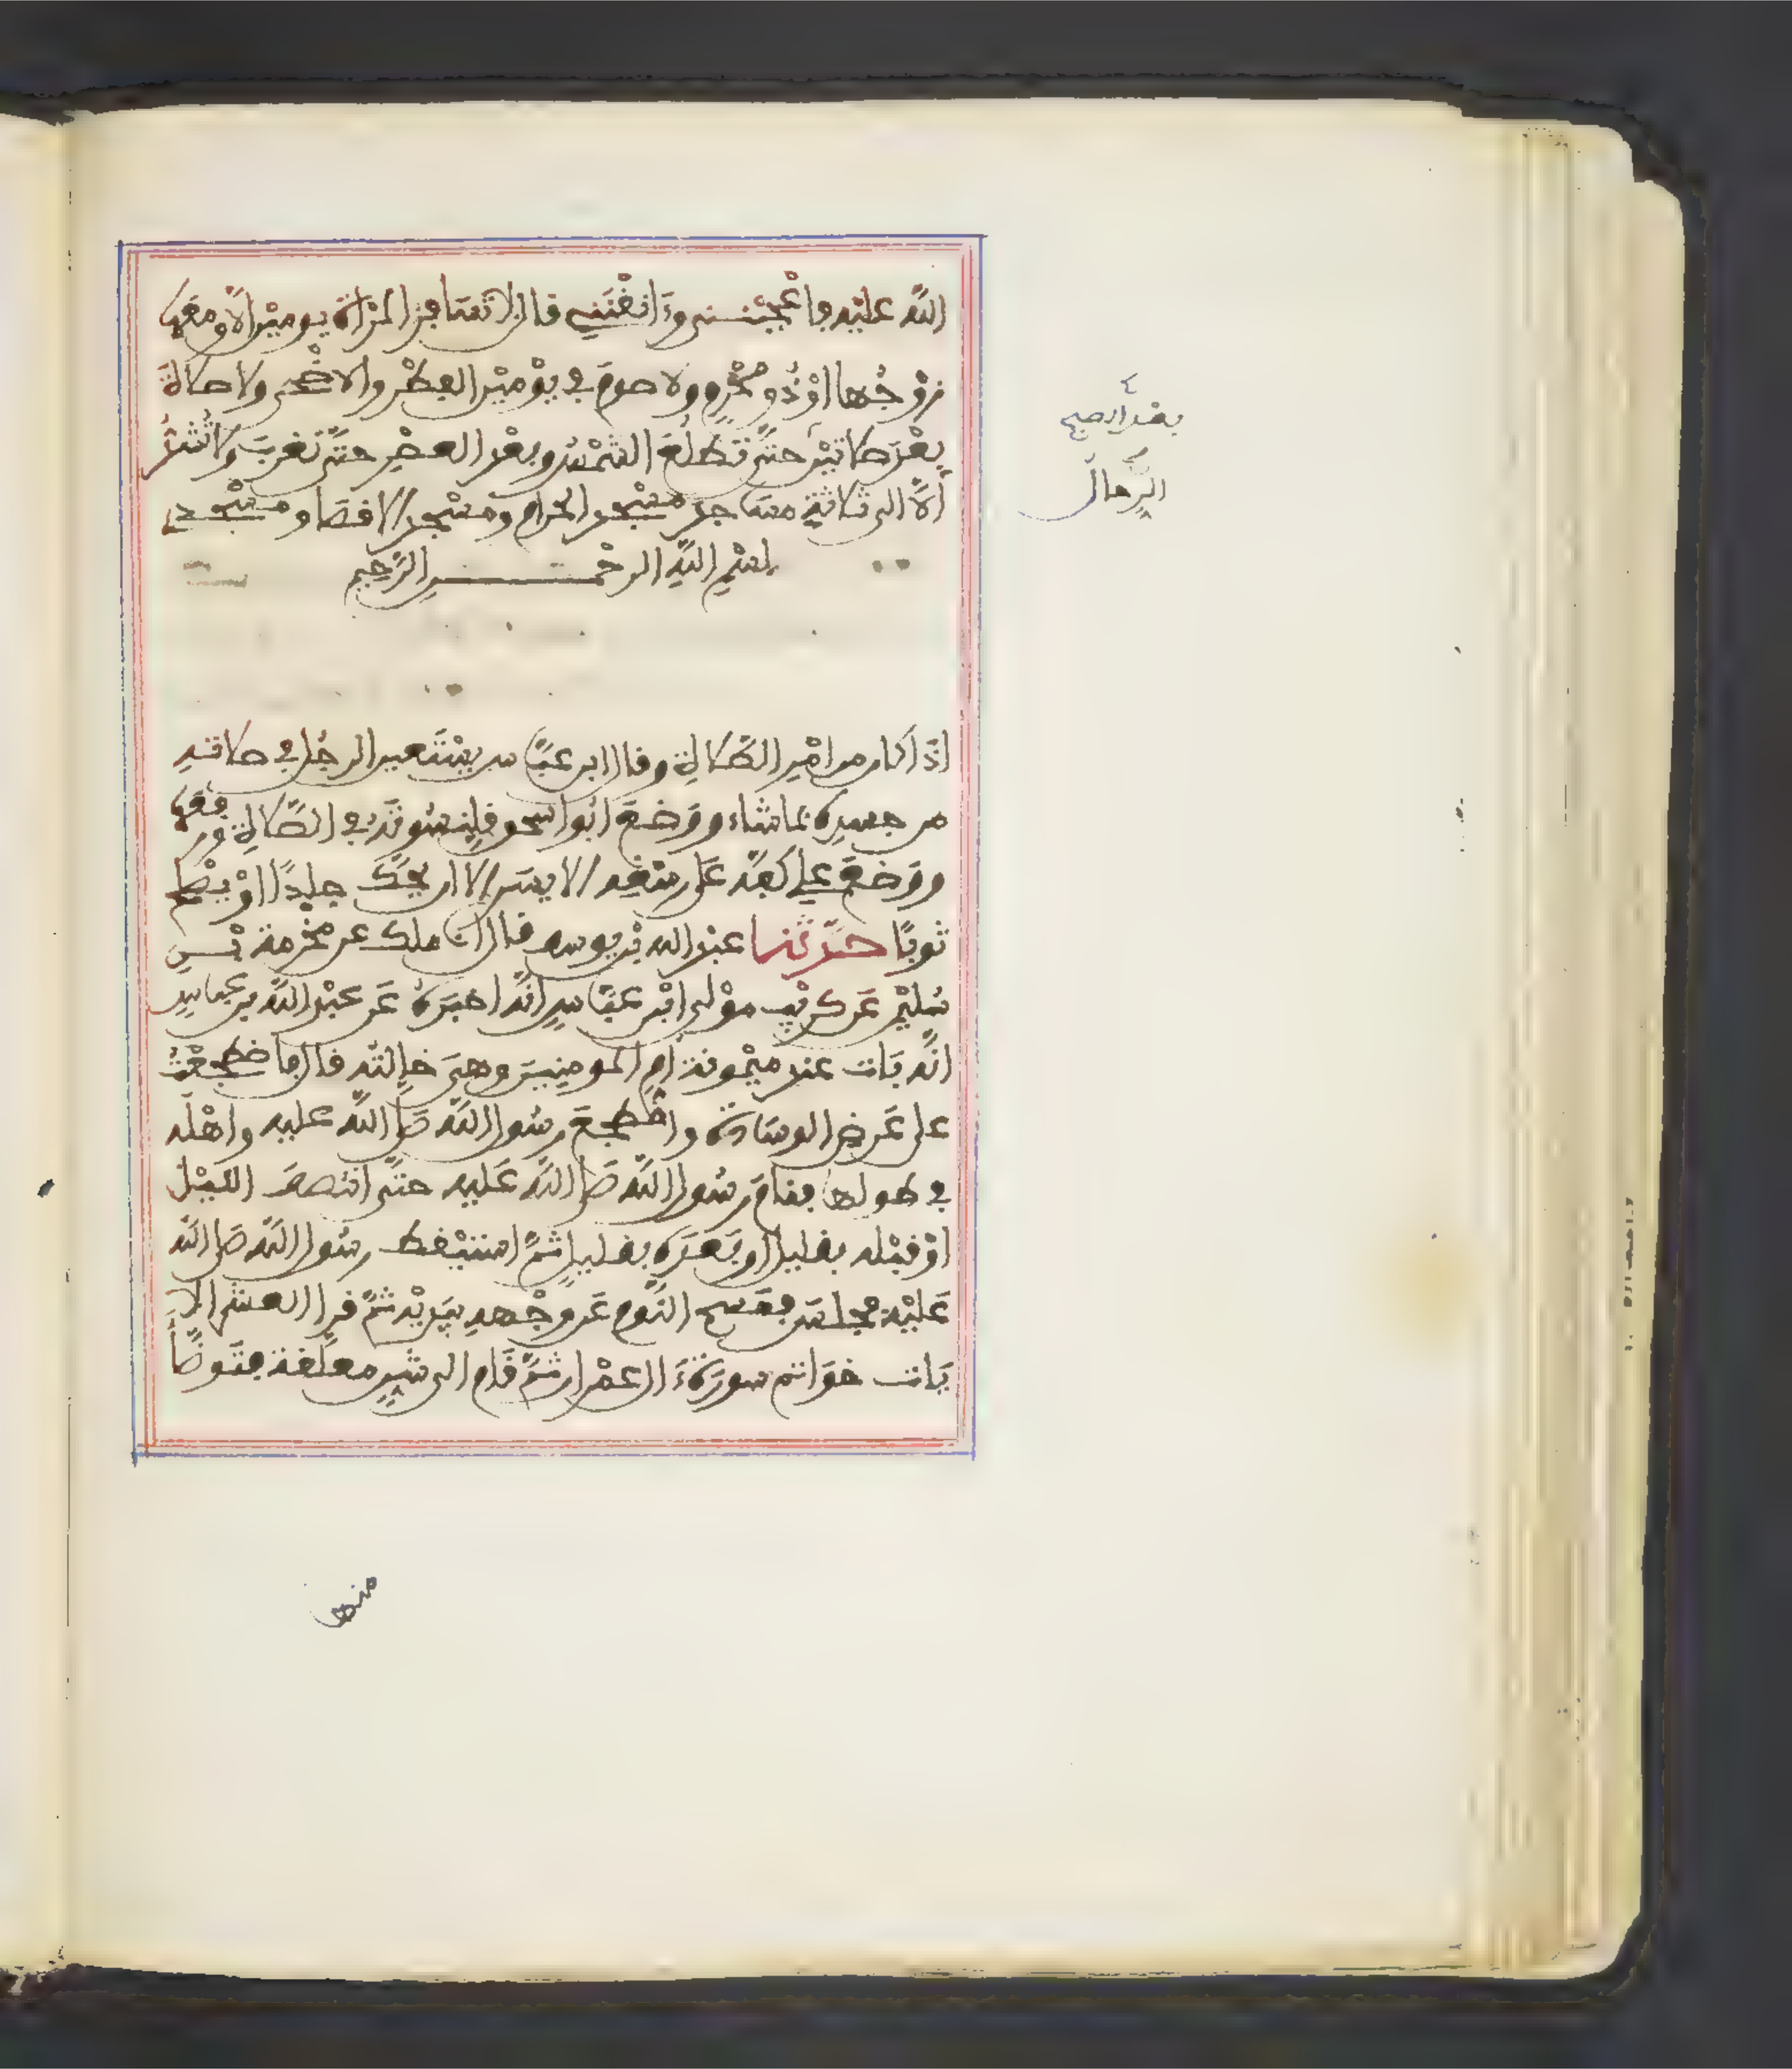 اللَّه عليْه فاعْجبْننى وءَانقْنَنِى قال لا تسَافر المرْاة يوميْن الّا ومعَها
زوْجُها اوْ ذُو محْرمٍ ولا صومَ فى يوْميْن الفِطْر والاضْحى ولا صلاةَ
بعْدَ صلاتيْن حتَّى تطلُعَ الشمْسُ وبعْد العصْرِ حتَّى تغربَ ولا تُشدُّ
الَّا الى ثلاثةِ مسَاجد مسْجد الحرام ومسْجد الاقصَا ومسْجدى
بسْمِ اللَّهِ الرحْمـن الرَّحِيم
اذَا كان من امْرِ الصَّلاةِ وقال ابن عبَّاس يسْتَعين الرجُل فى صلاته
من جسدِه بما شاء ووَضعَ ابُو اسحو قلنسُوتَه فى الصَّلاةِ ورفعَها
ووَضعَ على كفَّه على رسْغِه الايسَر الا ان يحُكَّ جلدًا اوْ يصْلح
ثوبًا حدّثنا عبْد الله بْن يوسف قال انا ملك عن مخْرمة بْنِ
سُليْمن عَن كريْب موْلى ابْن عبَّاسٍ انَّه اخبَرهُ عَن عبْد اللَّه بن عباسٍ
انَّه بَات عند ميْمونة امِ المومنِينَ وهىَ خالته قال فاضطجعْتُ
على عَرض الوسَادة واضْطجعَ رسُول اللَّه صَلى اللَّه عليه واهْلُه
فى طولها فنامَ رسُول اللَّه صَلى اللَّه عَليه حتَّى انتصفَ الليْلُ
اوْ قبْله بقليل او بَعدَه بقليلٍ ثمَّ استيْقظ رسُول اللَّه صَلى اللَّه
عَليْه فجلسَ فمَسح النَّومَ عَن وجْههِ بيَديْه ثمَّ قرا العشْر الا
يَات خوَاتم سورَة ءَال عمْران ثمَّ قَام الى شَنٍّ معلّقة فتَوضَّأ
بعْد الصبح
الرِّحالُ
منها